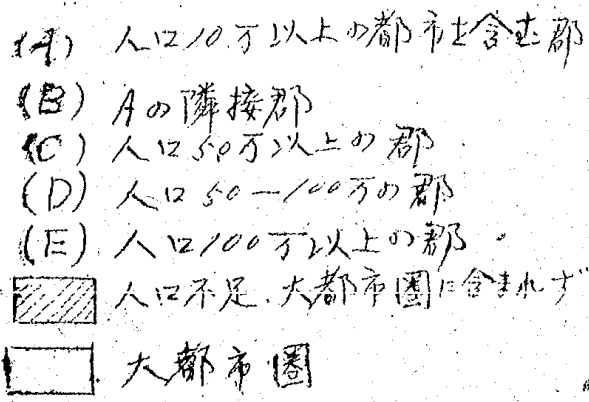 (A) 人口10万以上の都市を含む郡
(B) Aの隣接郡
(C) 人口50万以上の郡
(D) 人口50—100万の郡
(E) 人口100万以上の郡。
人口不足、大都市圏に含まれず
大都市圏